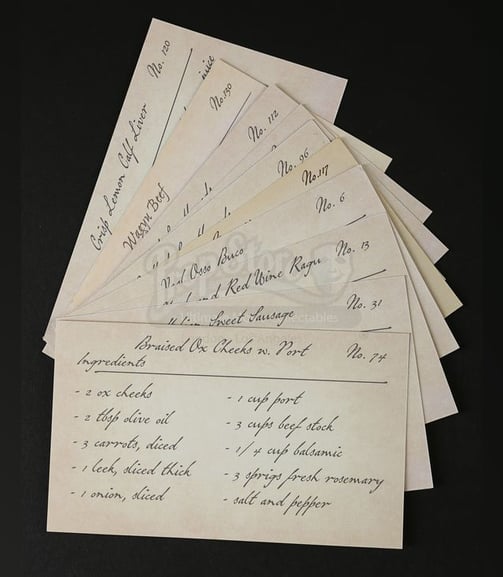 No. 120
Crisp Lemon Calf Liver
No. 130
Wagyu Beef
No. 112
No. 96
No. 117
No. 6
Osso Buco
No. 13
and Red Wine Ragu
No. 31
Sweet Sausage
Braised Ox Cheeks w. Port No. 74
Ingredients
- 2 ox cheeks
- 2 tbsp olive oil
- 3 carrots, diced
- 1 leek, sliced thick
- 1 onion, sliced
- 1 cup port
- 3 cups beef stock
- 1/4 cup balsamic
- 3 sprigs fresh rosemary
- salt and pepper